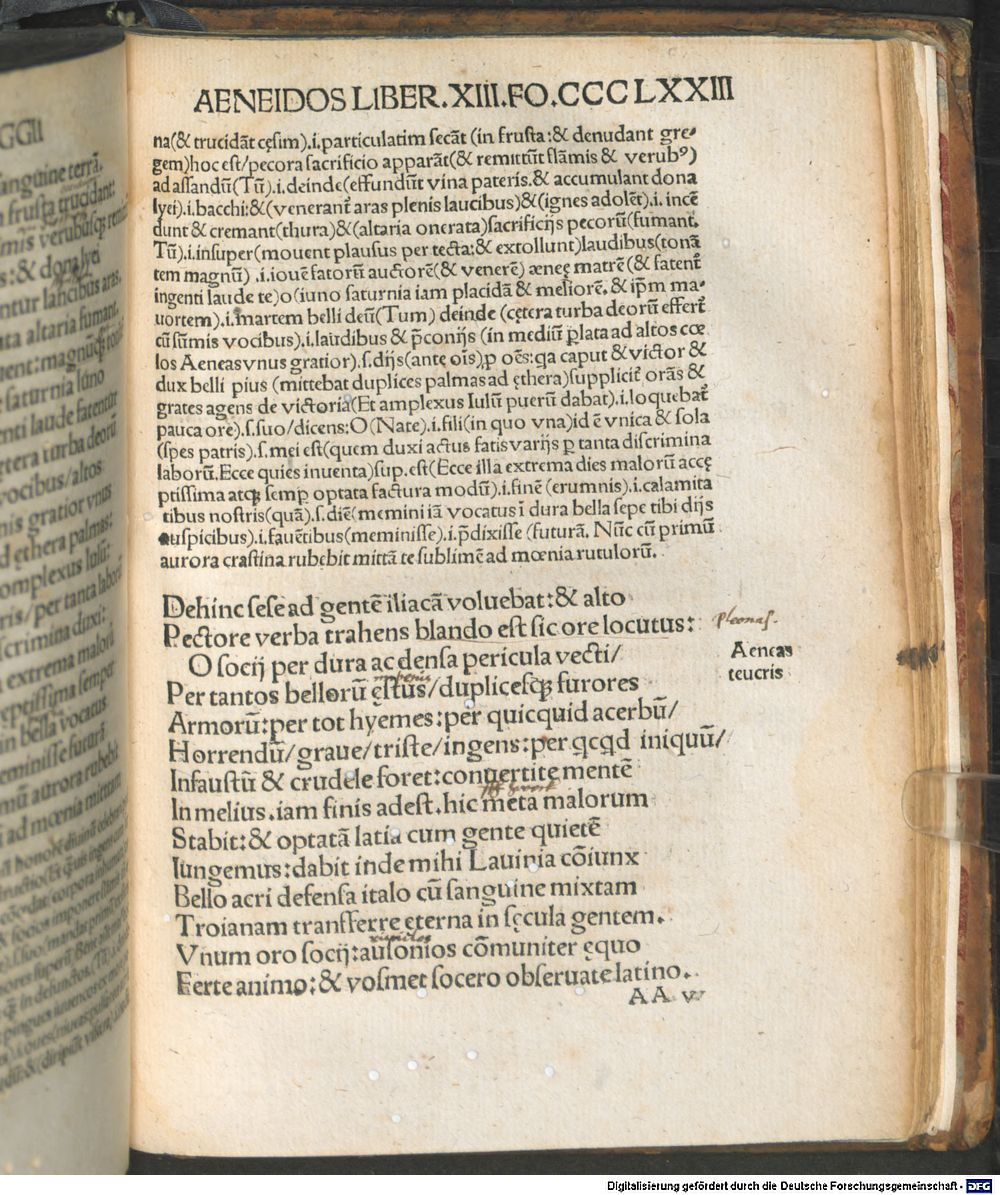 AENEIDOS LIBER.XIII.FO.CCCLXXIII
na(& trucidãt cęsim).i.particulatim secãt (in frusta:& denudant gre⸗
gem)hoc est/pecora sacrificio apparãt(& remittũt flãmis & verubꝰ)
ad assandũ(Tũ).i.deinde(effundũt vina pateris.& accumulant dona
lyei).i.bacchi:&(venerant᷑ aras plenis laucibus)&(ignes adolẽt).i.incẽ
dunt & cremant(thura)&(altaria onerata)sacrificijs pecorũ(fumant.
Tũ).i.insuper(mouent plausus per tecta:& extollunt)laudibus(tonã
tem magnũ) .i.iouẽ fatorũ auctorẽ(& venerẽ) æneę matrẽ(& fatent᷑
ingenti laude te)o(iuno saturnia iam placidã & meliorẽ.& ip̃m ma⸗
uortem).i.martem belli deũ(Tum) deinde (cętera turba deorũ effert᷑
cũ sũmis vocibus).i.laudibus & p̃conijs (in mediũ ꝓlata ad altos cœ
los Aeneas vnus gratior).s.dijs(ante oĩs)ꝓ oẽs:qa caput & victor &
dux belli pius (mittebat duplices palmas ad ęthera)suppliciť orãs &
grates agens de victoria(Et amplexus Iulũ puerũ dabat).i.loquebat᷑
pauca ore).s.suo/dicens:O(Nate).i.fili(in quo vna)id ẽ vnica & sola
(spes patris).s.mei est(quem duxi actus fatis varijs ꝑ tanta discrimina
laborũ.Ecce quies inuenta)sup.est(Ecce illa extrema dies malorũ accę
ptissima atqꝫ semꝑ optata factura modũ).i.finẽ (erumnis).i.calamita
tibus nostris(quã).s.diẽ(memini iã vocatus ĩ dura bella sepe tibi dijs
auspicibus).i.fauẽtibus(meminisse).i.p̃dixisse (futurã. Nũc cũ primũ
aurora crastina rubebit mittã te sublimẽ ad mœnia rutulorũ.
Dehinc sese ad gentẽ iliacã voluebat:& alto
Pectore verba trahens blando est sic ore locutus:
pleonas.
O socij per dura ac densa pericula vecti/
Aeneas
teucris
Per tantos bellorũ ęstus/duplicesqꝫ furores
Armorũ:per tot hyemes:per quicquid acerbũ/
Horrendũ/graue/triste/ingens:per qcqd iniquũ/
Infaustũ & crudele foret:conuertite mentẽ
In melius.iam finis adest.hic meta malorum
Stabit:& optatã latia cum gente quietẽ
Iungemus:dabit inde mihi Lauinia cõiunx
Bello acri defensa italo cũ sanguine mixtam
Troianam transferre ęterna in sęcula gentem.
Vnum oro socij:ausonios cõmuniter ęquo
Ferte animo:& vosmet socero obseruate latino.
AA v
Digitalisierung gefördert durch die Deutsche Forschungsgemeinschaft - DFG